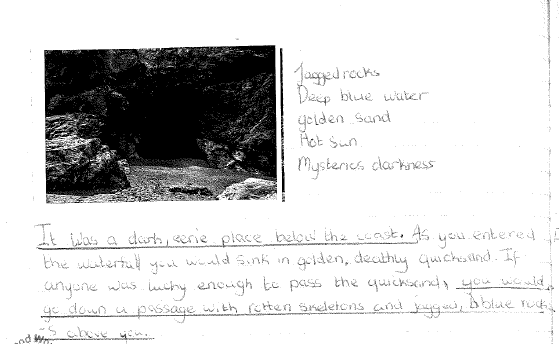 Jagged rocks
Deep blue water
golden sand
Hot sun
Mysterios darkness
It was a dark, eerie place below the coast. As you entered
the waterfall you would sink in golden, deathly quicksand. If
anyone was lucky enough to pass the quicksand, you would
go down a passage with rotten skeletons and jagged, blue rock
s above you.